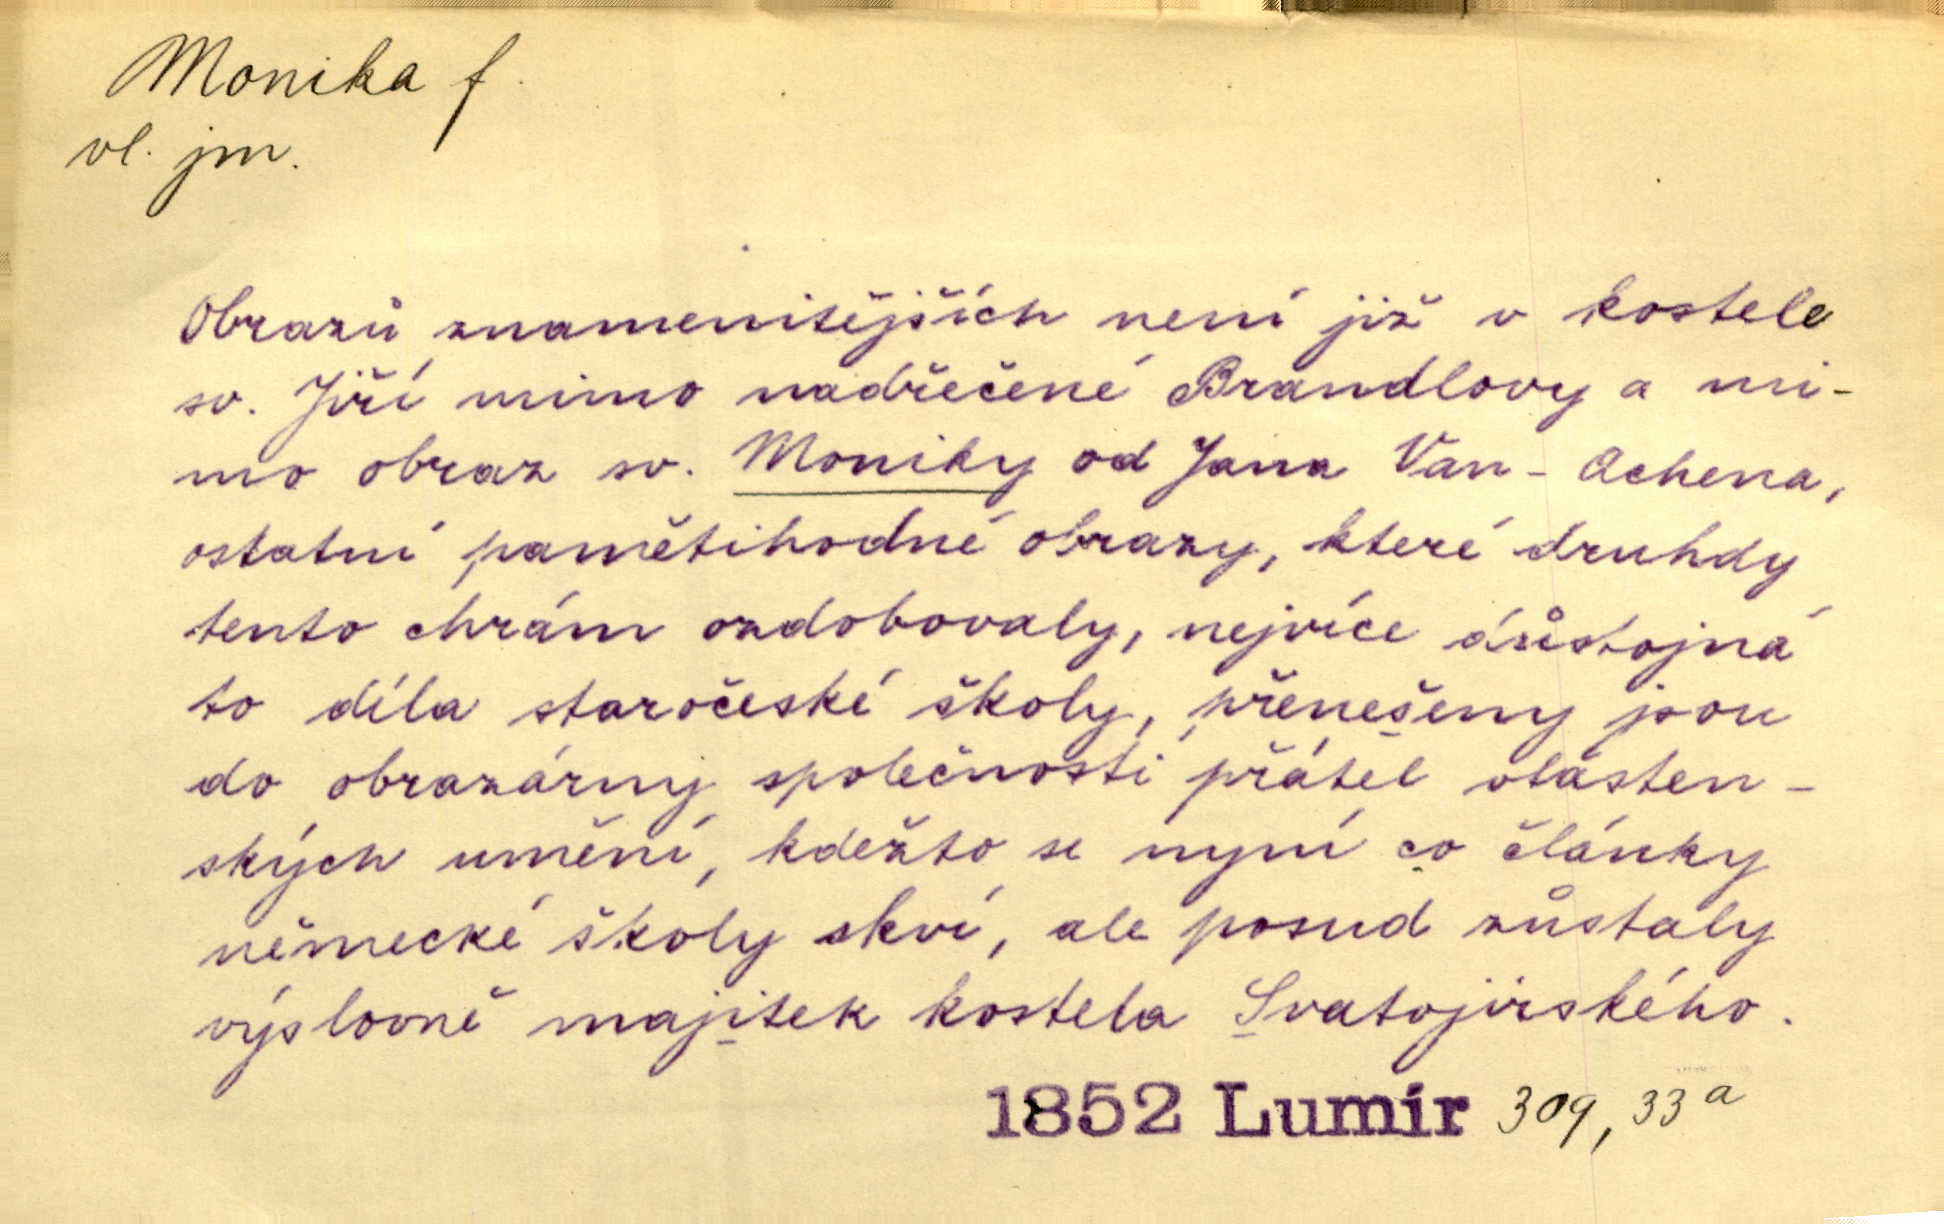 Monika f.
vl. jm.
Obrazů znamenitějších není již v kostele
sv. Jiří mimo nadřečené Brandlovy a mi-
mo obraz sv. Moniky od Jana Van-Achena,
ostatní pamětihodné obrazy, které druhdy
tento chrám ozdobovaly, nejvíce důstojná
to díla staročeské školy, přenešeny jsou
do obrazárny společnosti přátel vlasten-
ských umění, kdežto se nyní co články
německé školy skví, ale posud zůstaly
výslovně majitek kostela Svatojirského.
1852 Lumír 309, 33 a